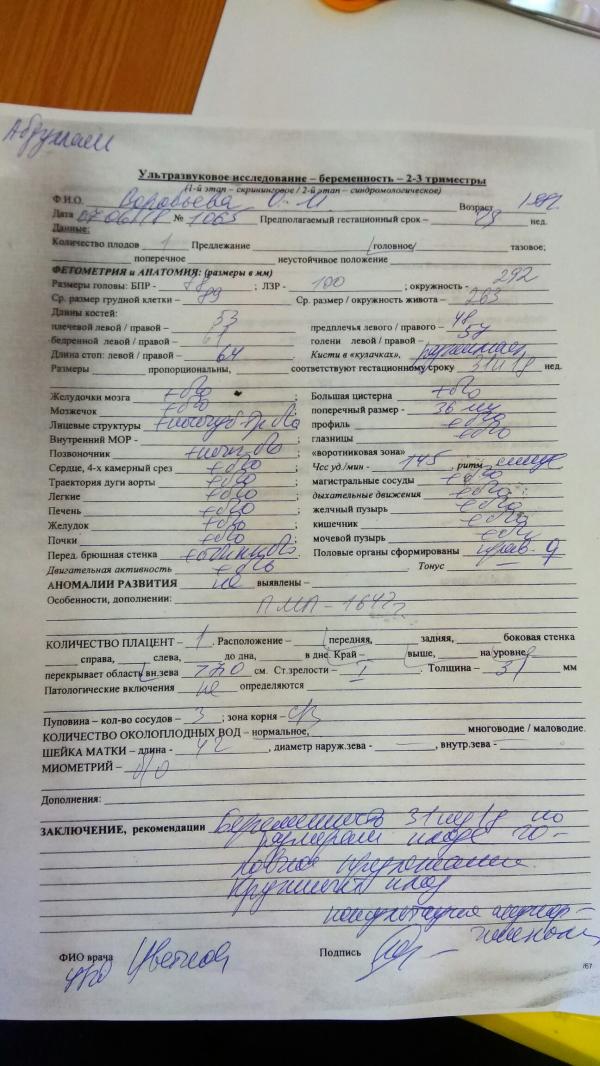 Ультразвуковое исследование – беременность – 2-3 триместры
(1-й этап – скрининговое / 2-й этап – синдромологическое)
Ф.И.О. Воробьева О.И. Возраст
Дата № 1065 Предполагаемый гестационный срок – нед.
Данные:
Количество плодов 1 Предлежание головное/ тазовое;
поперечное неустойчивое положение
ФЕТОМЕТРИЯ и АНАТОМИЯ: (размеры в мм)
Размеры головы: БПР - ; ЛЗР - 100 ; окружность - 292
Ср. размер грудной клетки – 89 Ср. размер / окружность живота – 263
Длины костей:
плечевой левой / правой – 53 предплечья левого / правого – 48
бедренной левой / правой – 61 голени левой / правой – 54
Длина стоп: левой / правой – 64 Кисти в «кулачках»,
Размеры пропорциональны, соответствуют гестационному сроку нед.
Желудочки мозга +б/о ; Большая цистерна +б/о
Мозжечок +б/о ; поперечный размер - 36 мм
Лицевые структуры профиль +б/о
Внутренний МОР - ; глазницы +б/о
Позвоночник «воротниковая зона»
Сердце, 4-х камерный срез +б/о Чсс уд./мин - 145, ритм
Траектория дуги аорты +б/о ; магистральные сосуды +б/о
Легкие +б/о ; дыхательные движения +б/о
Печень +б/о ; желчный пузырь +б/о
Желудок +б/о ; кишечник +б/о
Почки +б/о ; мочевой пузырь +б/о
Перед. брюшная стенка Половые органы сформированы
Двигательная активность +б/о Тонус –
АНОМАЛИИ РАЗВИТИЯ не выявлены –
Особенности, дополнения: ПМП – 1647г
КОЛИЧЕСТВО ПЛАЦЕНТ – 1. Расположение – передняя, задняя, боковая стенка
справа, слева, до дна, в дне. Край – выше, на уровне,
перекрывает область вн.зева 70 см. Ст.зрелости – I. Толщина – 31 мм
Патологические включения не определяются
Пуповина – кол-во сосудов – 3 ; зона корня –
КОЛИЧЕСТВО ОКОЛОПЛОДНЫХ ВОД – нормальное, многоводие / маловодие.
ШЕЙКА МАТКИ – длина - 42, диаметр наруж.зева - , внутр.зева -
МИОМЕТРИЙ – б/о
Дополнения:
ЗАКЛЮЧЕНИЕ, рекомендации Беременность 31 нед 1д по
размерам плода го-
ловное предлежание.
Крупный плод
консультация
ФИО врача Подпись
/67